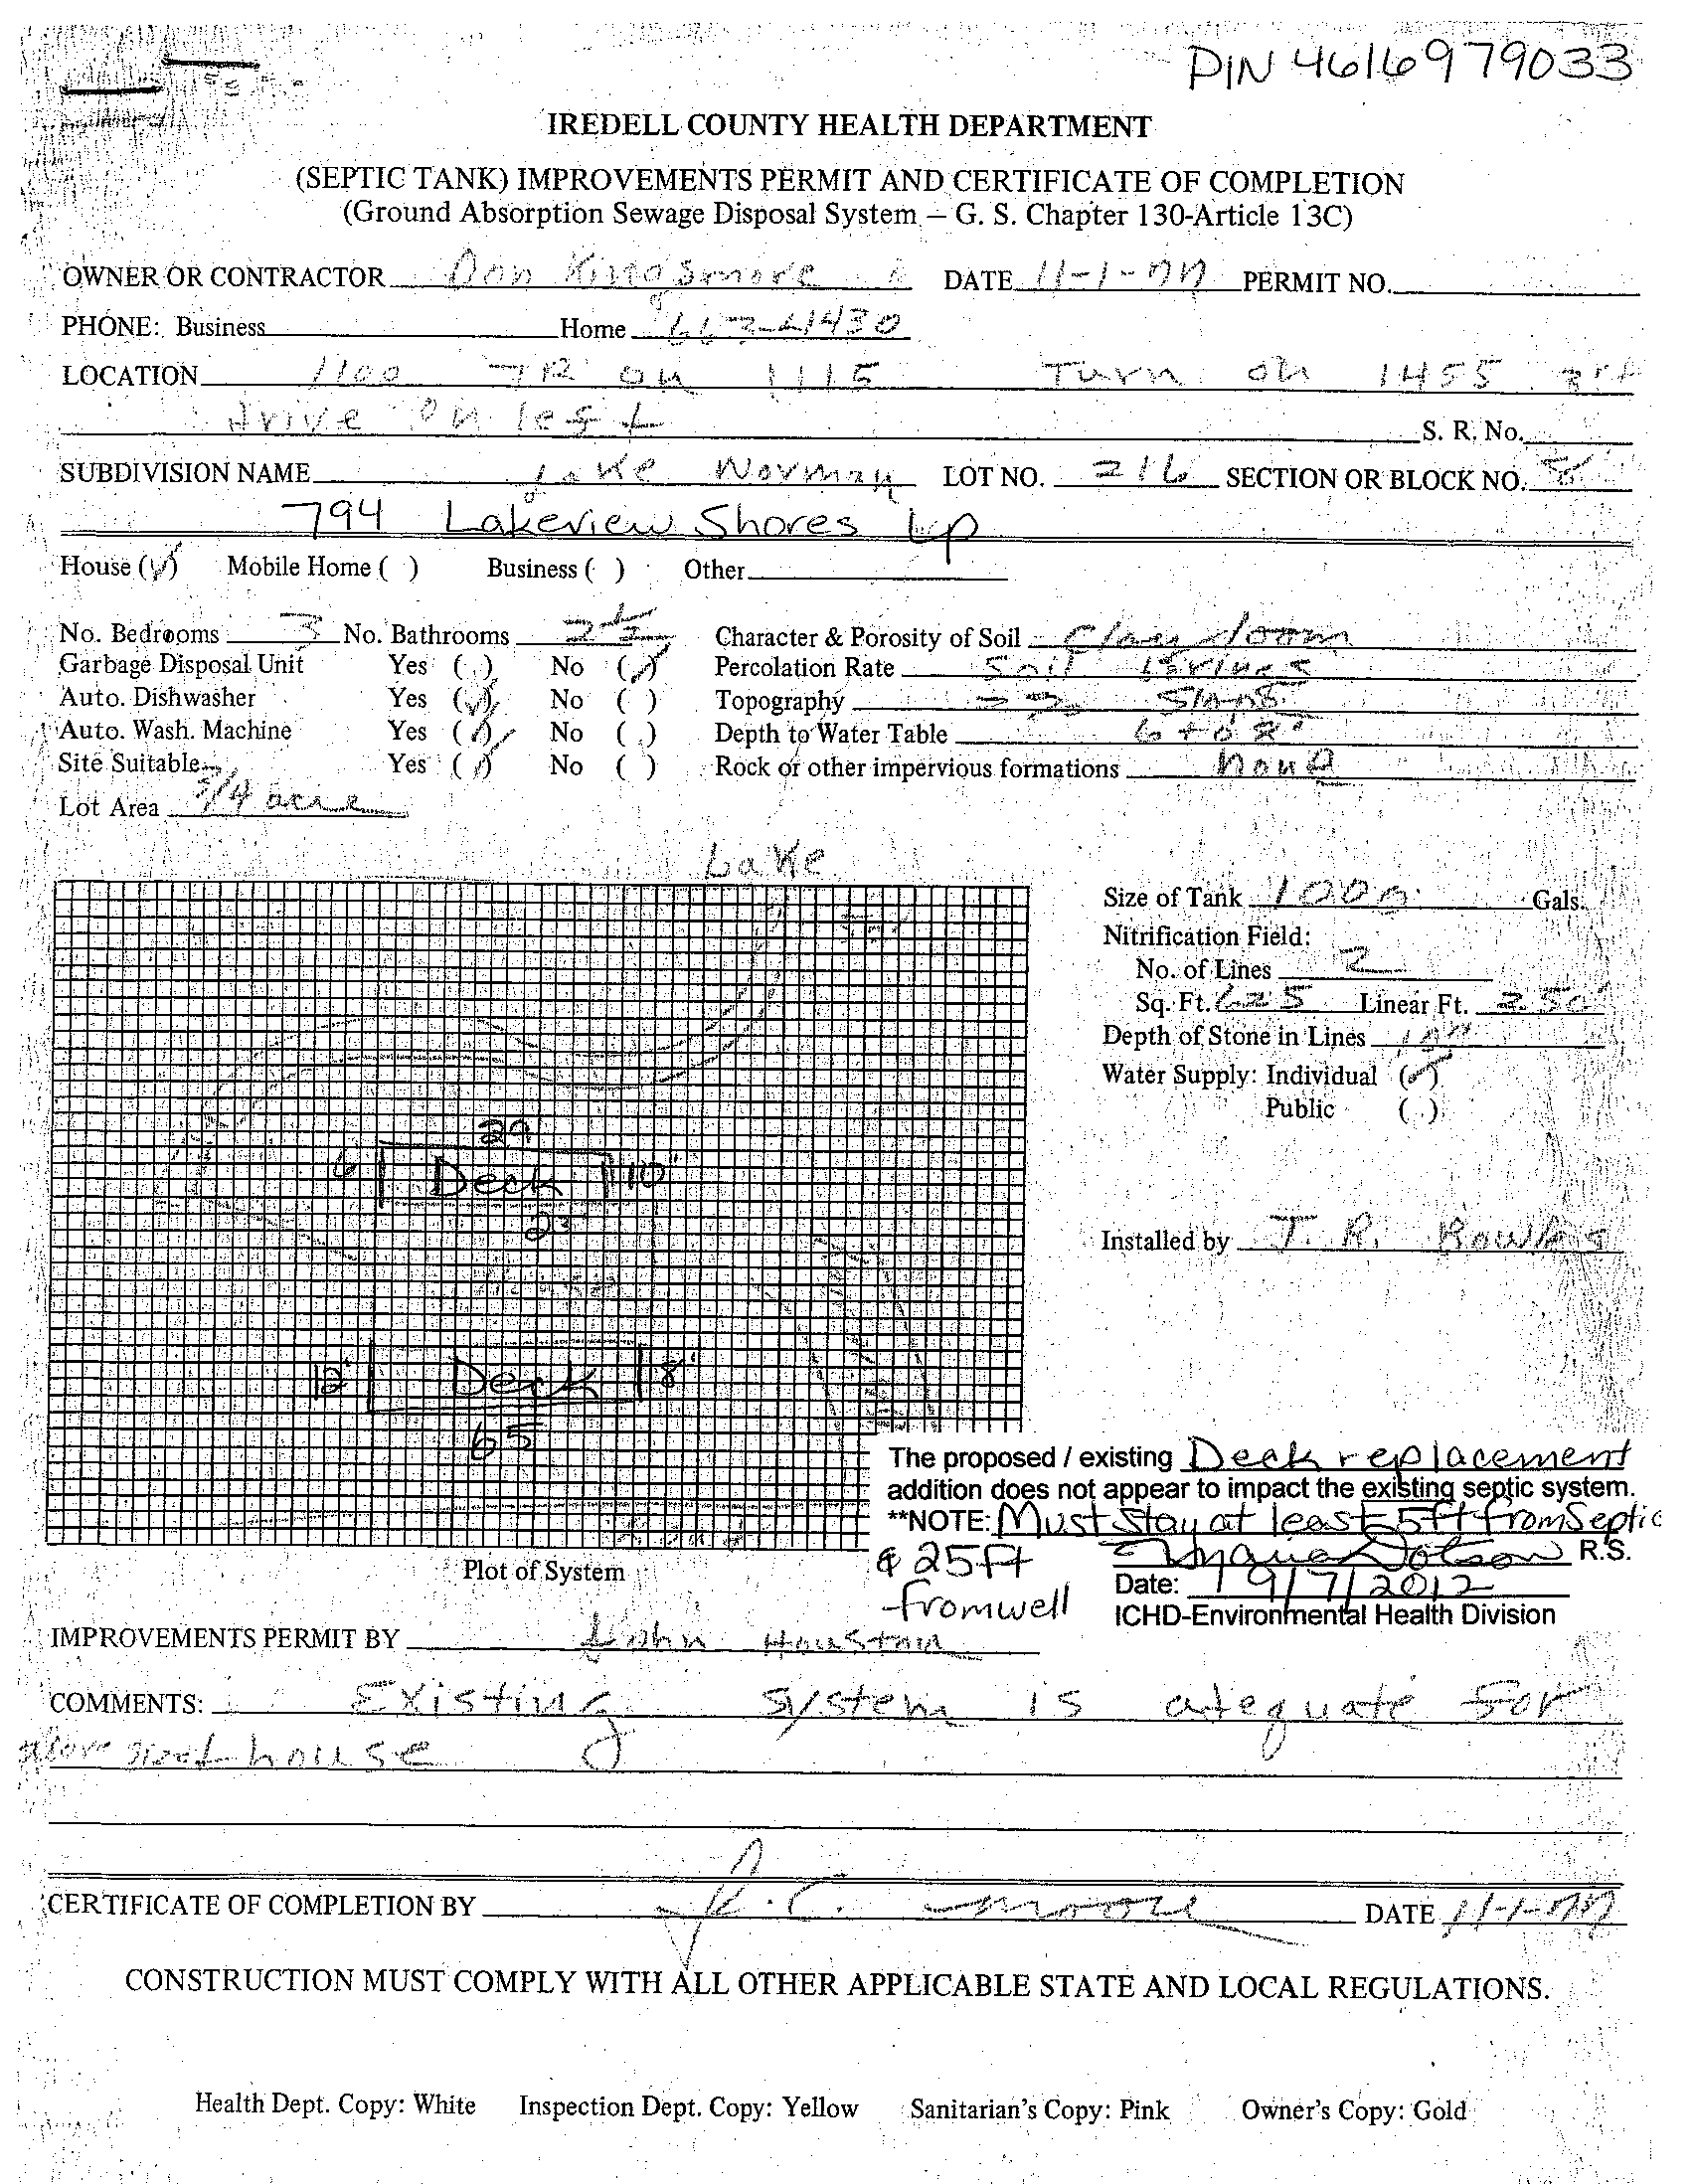 PIN 4616979033
IREDELL COUNTY HEALTH DEPARTMENT
(SEPTIC TANK) IMPROVEMENTS PERMIT AND CERTIFICATE OF COMPLETION
(Ground Absorption Sewage Disposal System – G. S. Chapter 130-Article 13C)
OWNER OR CONTRACTOR Don Kingsmore DATE 11-1-77 PERMIT NO.
PHONE: Business Home 663-4430
LOCATION 1100 TR on 1115 Turn on 1455
drive on left S. R. No.
SUBDIVISION NAME Lake Norman LOT NO. 216 SECTION OR BLOCK NO. 8
794 Lakeview Shores Lp
House (✓) Mobile Home ( ) Business ( ) Other
No. Bedrooms 3 No. Bathrooms 2½ Character & Porosity of Soil Clay loam
Garbage Disposal Unit Yes ( ) No (✓) Percolation Rate Soil
Auto. Dishwasher Yes (✓) No ( ) Topography
Auto. Wash. Machine Yes (✓) No ( ) Depth to Water Table 6 to 8'
Site Suitable Yes (✓) No ( ) Rock or other impervious formations none
Lot Area 3/4 acre
Lake
Size of Tank 1000 Gals.
Nitrification Field:
No. of Lines 2
Sq. Ft. 625 Linear Ft. 250'
Depth of Stone in Lines
Water Supply: Individual (✓)
Public ( )
29
6 Deck 10'
23
Installed by T. R.
12' Deck 8'
65
The proposed / existing Deck replacement
addition does not appear to impact the existing septic system.
**NOTE: Must Stay at least 5ft from Septic
& 25ft R.S.
from well
Date: 9/7/2012
ICHD-Environmental Health Division
Plot of System
IMPROVEMENTS PERMIT BY John Houston
COMMENTS: Existing system is adequate for
above sized house
CERTIFICATE OF COMPLETION BY R.C. Moore DATE 11-1-77
CONSTRUCTION MUST COMPLY WITH ALL OTHER APPLICABLE STATE AND LOCAL REGULATIONS.
Health Dept. Copy: White Inspection Dept. Copy: Yellow Sanitarian's Copy: Pink Owner's Copy: Gold